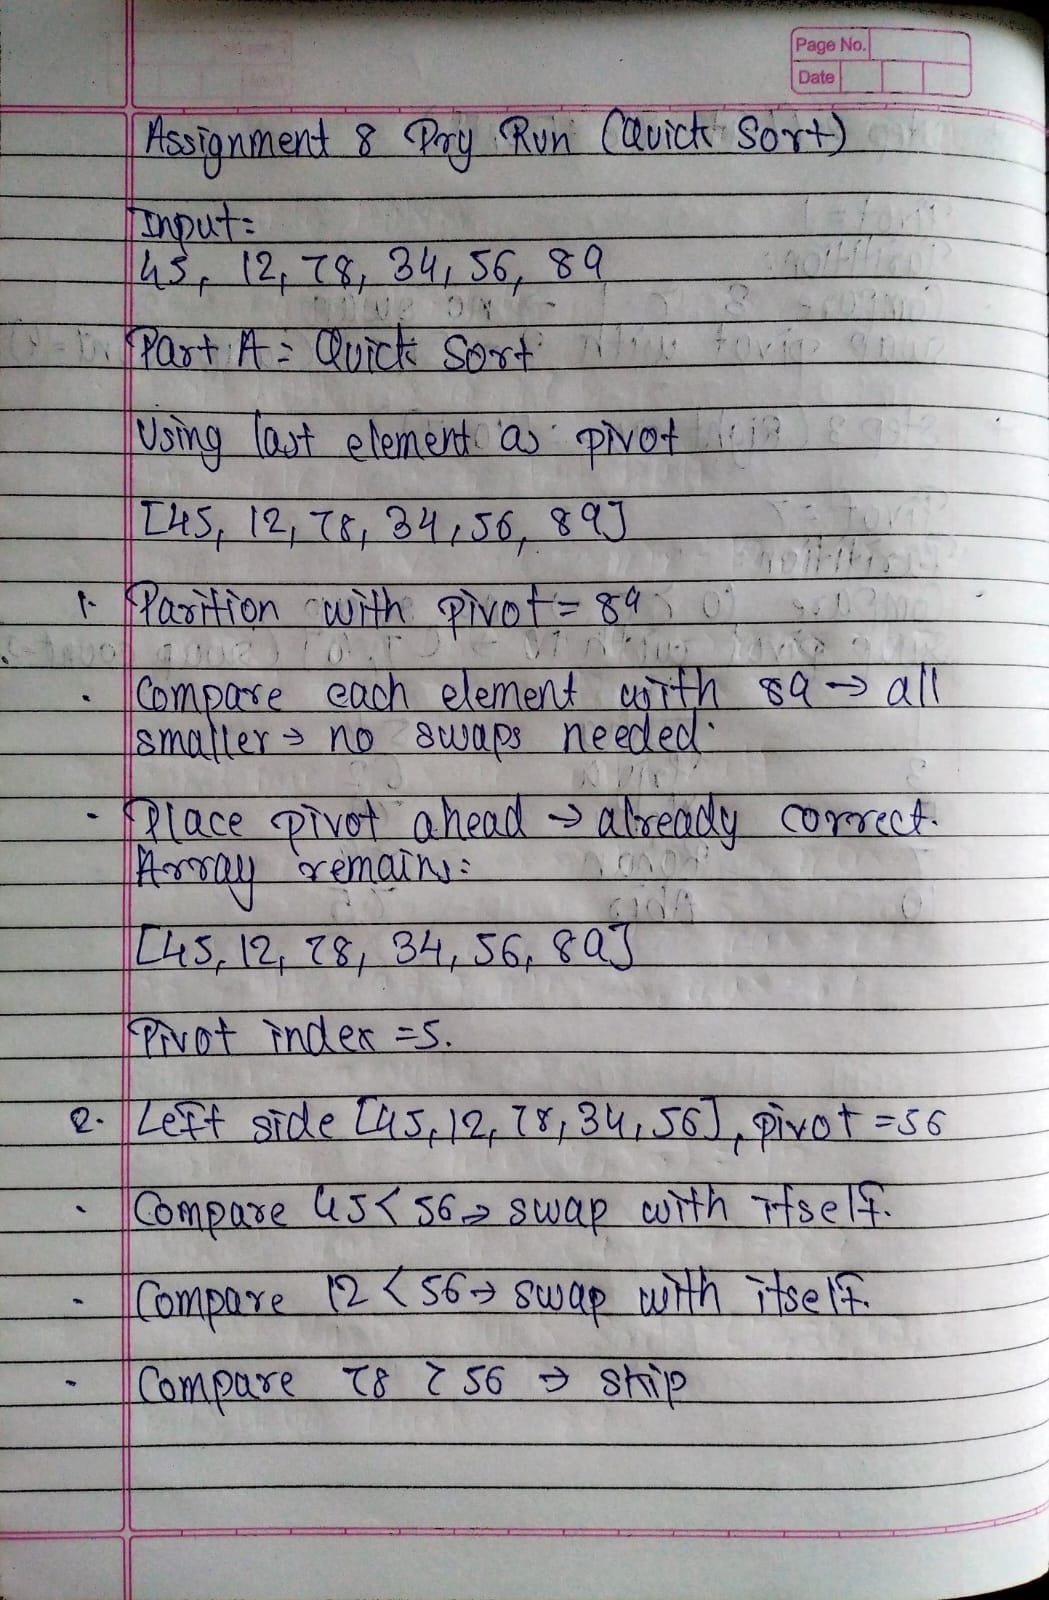 Page No.
Date
Assignment 8 Dry Run (Quick Sort)
Input:
45, 12, 78, 34, 56, 89
Part A: Quick Sort
Using last element as pivot
[45, 12, 78, 34, 56, 89]
1. Parition with pivot = 89
· Compare each element with 89 → all
smaller → no swaps needed.
· Place pivot ahead → already correct.
Array remains:
[45, 12, 78, 34, 56, 89]
Pivot index = 5.
2. Left side [45, 12, 78, 34, 56], pivot = 56
· Compare 45 < 56 → swap with itself.
· Compare 12 < 56 → swap with itself.
· Compare 78 > 56 → skip